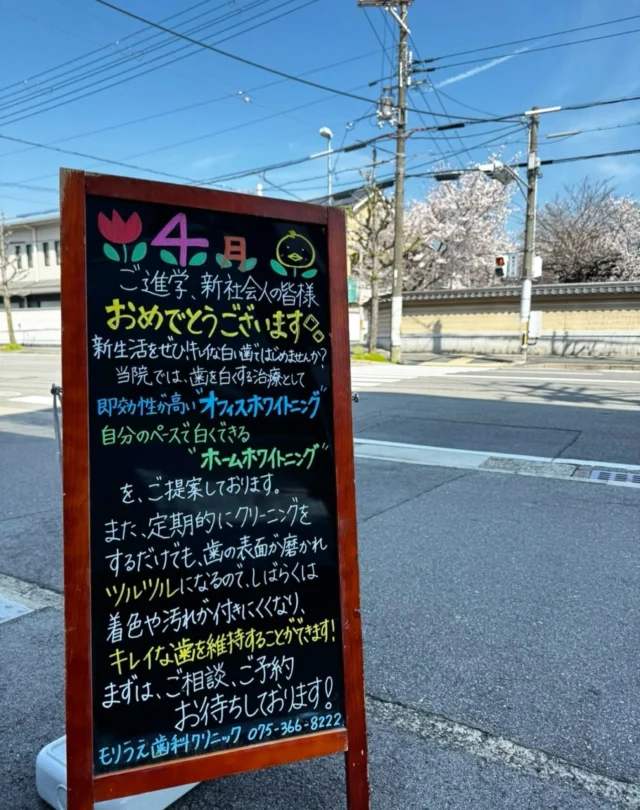 4月
ご進学、新社会人の皆様
おめでとうございます
新生活をぜひキレイな白い歯ではじめませんか?
当院では、歯を白くする治療として
即効性が高い"オフィスホワイトニング"
自分のペースで白くできる
"ホームホワイトニング"
を、ご提案しております。
また、定期的にクリーニングを
するだけでも、歯の表面が磨かれ
ツルツルになるので、しばらくは
着色や汚れが付きにくくなり、
キレイな歯を維持することができます!
まずは、ご相談、ご予約
お待ちしております!
モリうえ歯科クリニック 075-366-8222